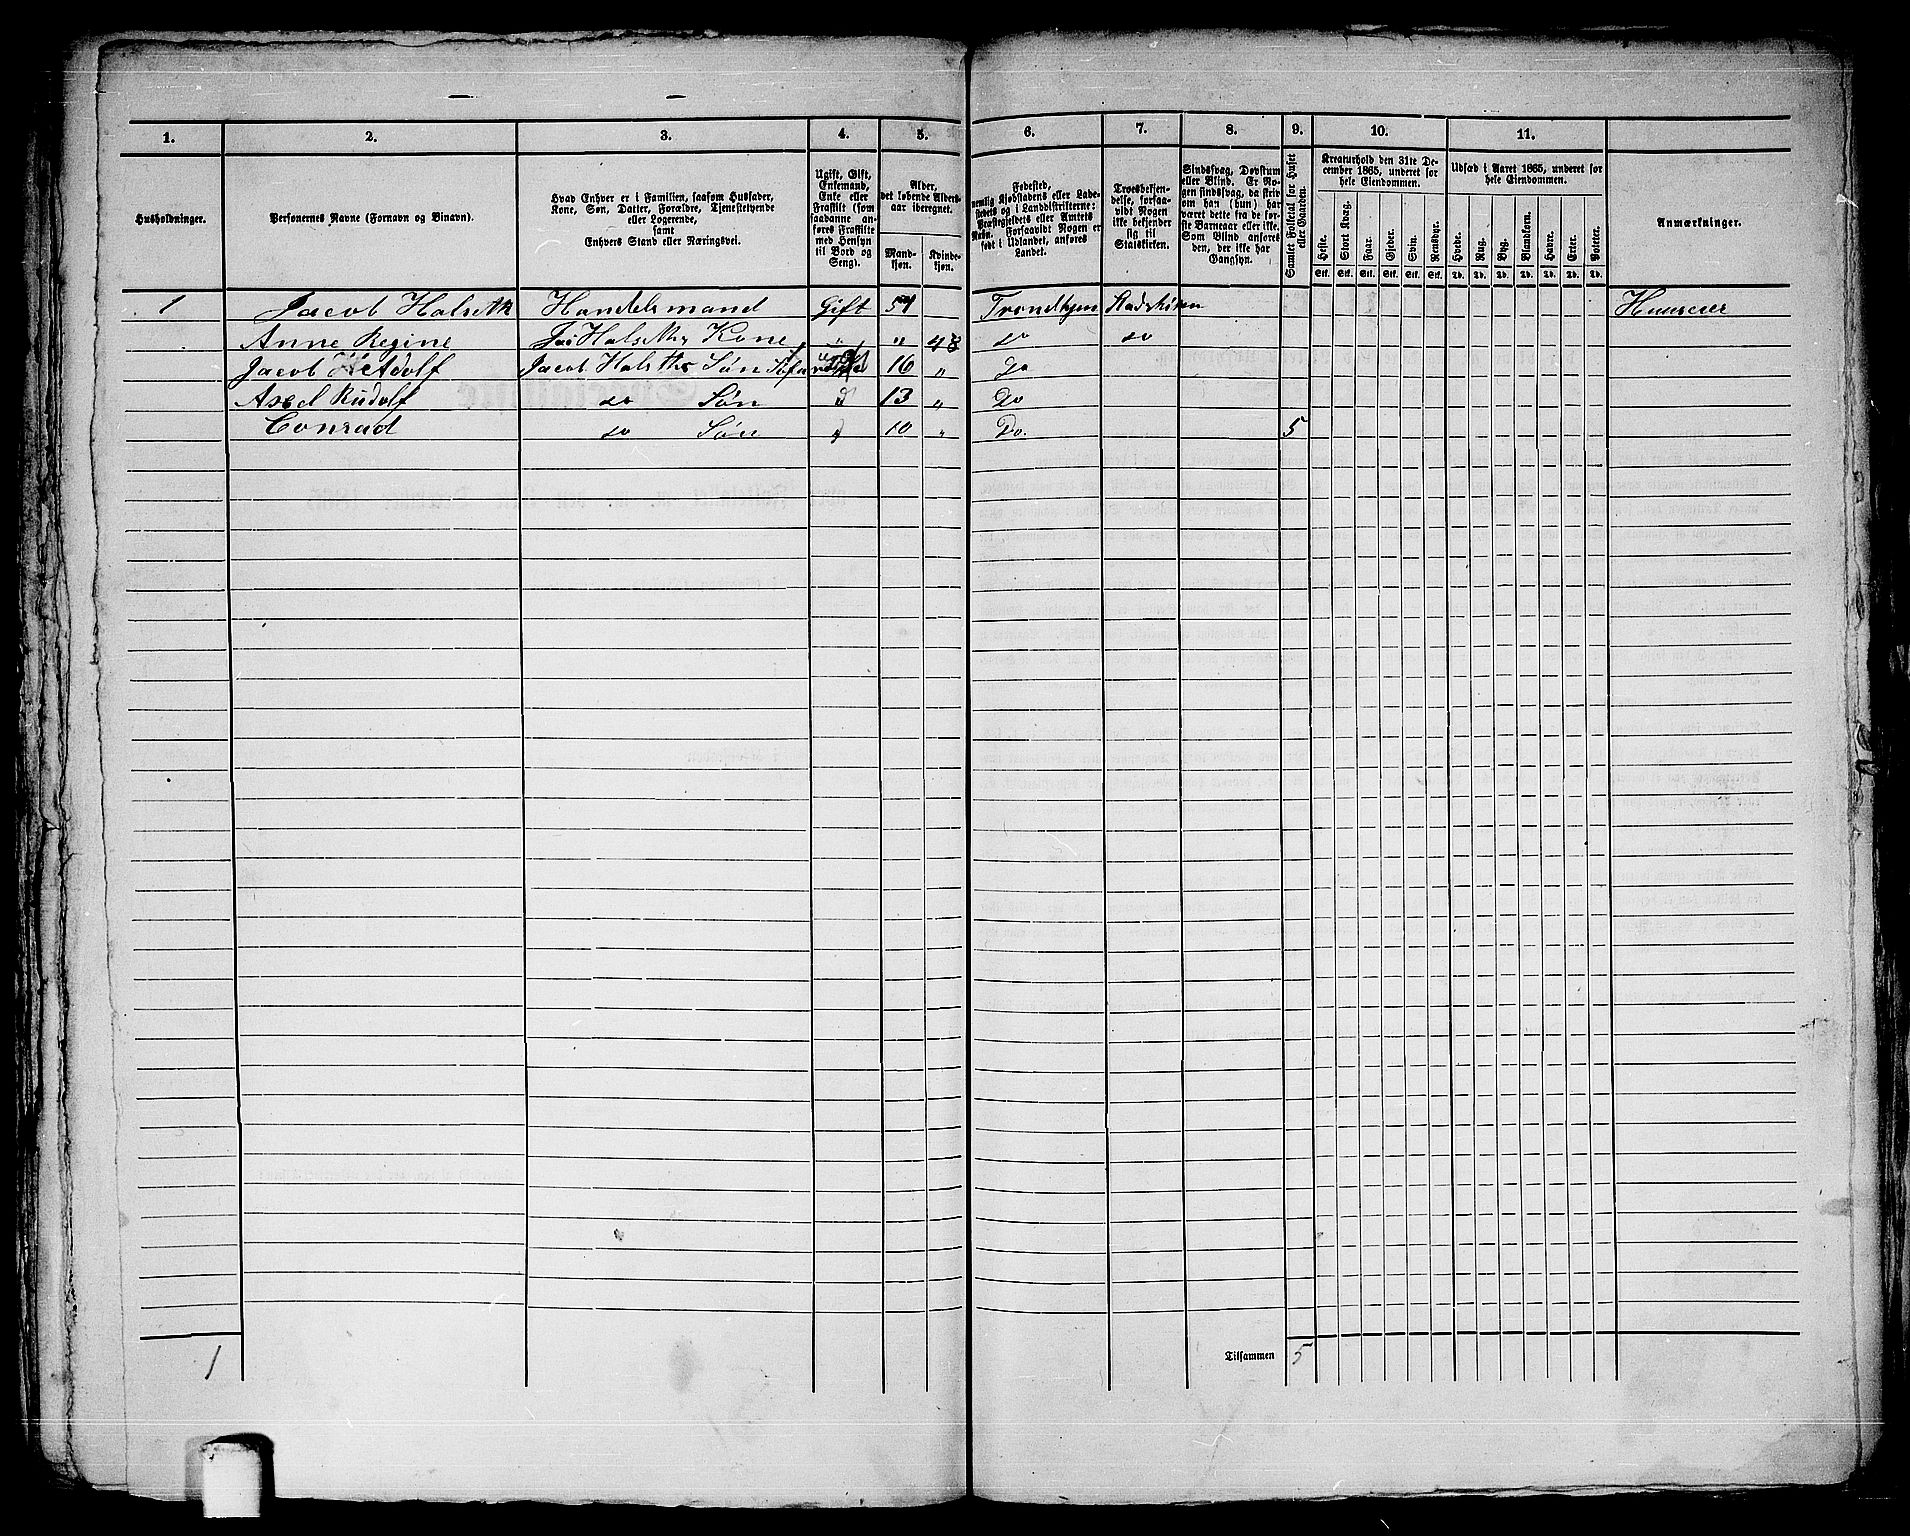 1. 2. 3. 4. 5. 6. 7. 8. 9. 10. 11.
Husholdninger.
Personernes Navne (Fornavn og Binavn).
Hvad Enhver er i Familien, saasom Husfader,
Kone, Søn, Datter, Forældre, Tjenestetyende
eller Logerende,
samt
Enhvers Stand eller Næringsvei.
Ugift, Gift,
Enkemand,
Enke eller
Fraskilt (som
saadanne an-
føres Fraskilte
med Hensyn
til Bord og
Seng).
Alder,
det løbende Alders-
aar iberegnet.
Mand-
kjøn.
Kvinde-
kjøn.
Fødested,
nemlig Kjøbstadens eller Lade-
stedets og i Landdistrikterne:
Præstegjeldets eller Amtets
Navn. Forsaavidt Nogen er
født i Udlandet, anføres
Landet.
Troesbekjen-
delse, forsaa-
vidt Nogen
ikke bekjender
sig til
Statskirken.
Sindssvag, Døvstum
eller Blind. Er No-
gen sindssvag, da skriv
om han (hun) har
været dette fra de før-
ste Barneaar eller ikke.
Som Blind anføres
den, der ikke har
Gangsyn.
Samlet Folketal for Huset
eller Gaarden.
Kreaturhold den 31te De-
cember 1865, underet for
hele Eiendommen.
Heste. Stort Kvæg. Faar. Gjeder. Svin. Rensdyr.
Stk. Stk. Stk. Stk. Stk. Stk.
Udsæd i Aaret 1865, underet for
hele Eiendommen.
Hvede. Rug. Byg. Blandkorn. Havre. Erter. Poteter.
Td. Td. Td. Td. Td. Td. Td.
Anmærkninger.
1 Jacob Halseth Handelsmand Gift 51 Trondhjem Stadskirken Huuseier
Anne Regine Jac Halseths Kone " " 48 do do
Jacob Adolf Jacob Halseths Søn 16 " do
Axel Rudolf do Søn 13 " Do
Conrad do Søn 10 " Do. 5
1 Tilsammen 5